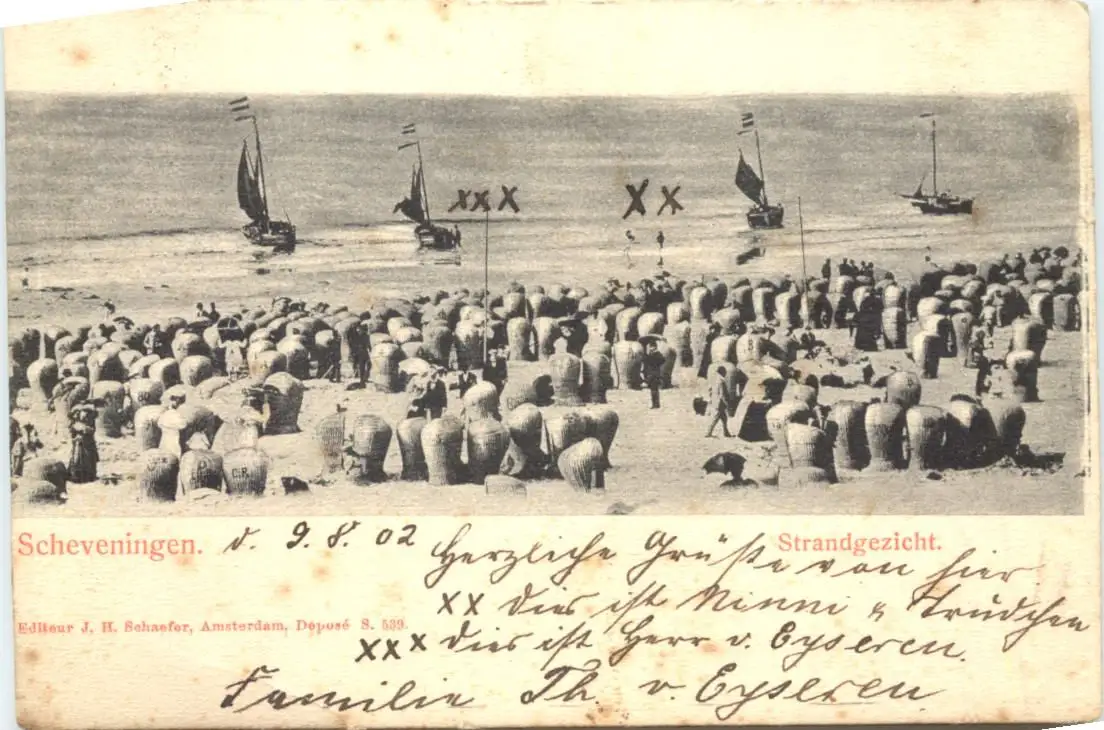 xxx X x
Scheveningen. d. 9.8.02 Herzliche Grüße von hier Strandgezicht.
xx dies ist Ninni u Trüdchen
Editeur J. H. Schaefer, Amsterdam, Déposé S. 539.
xxx dies ist Herr v. Eyseren.
Familie Th. v. Eyseren